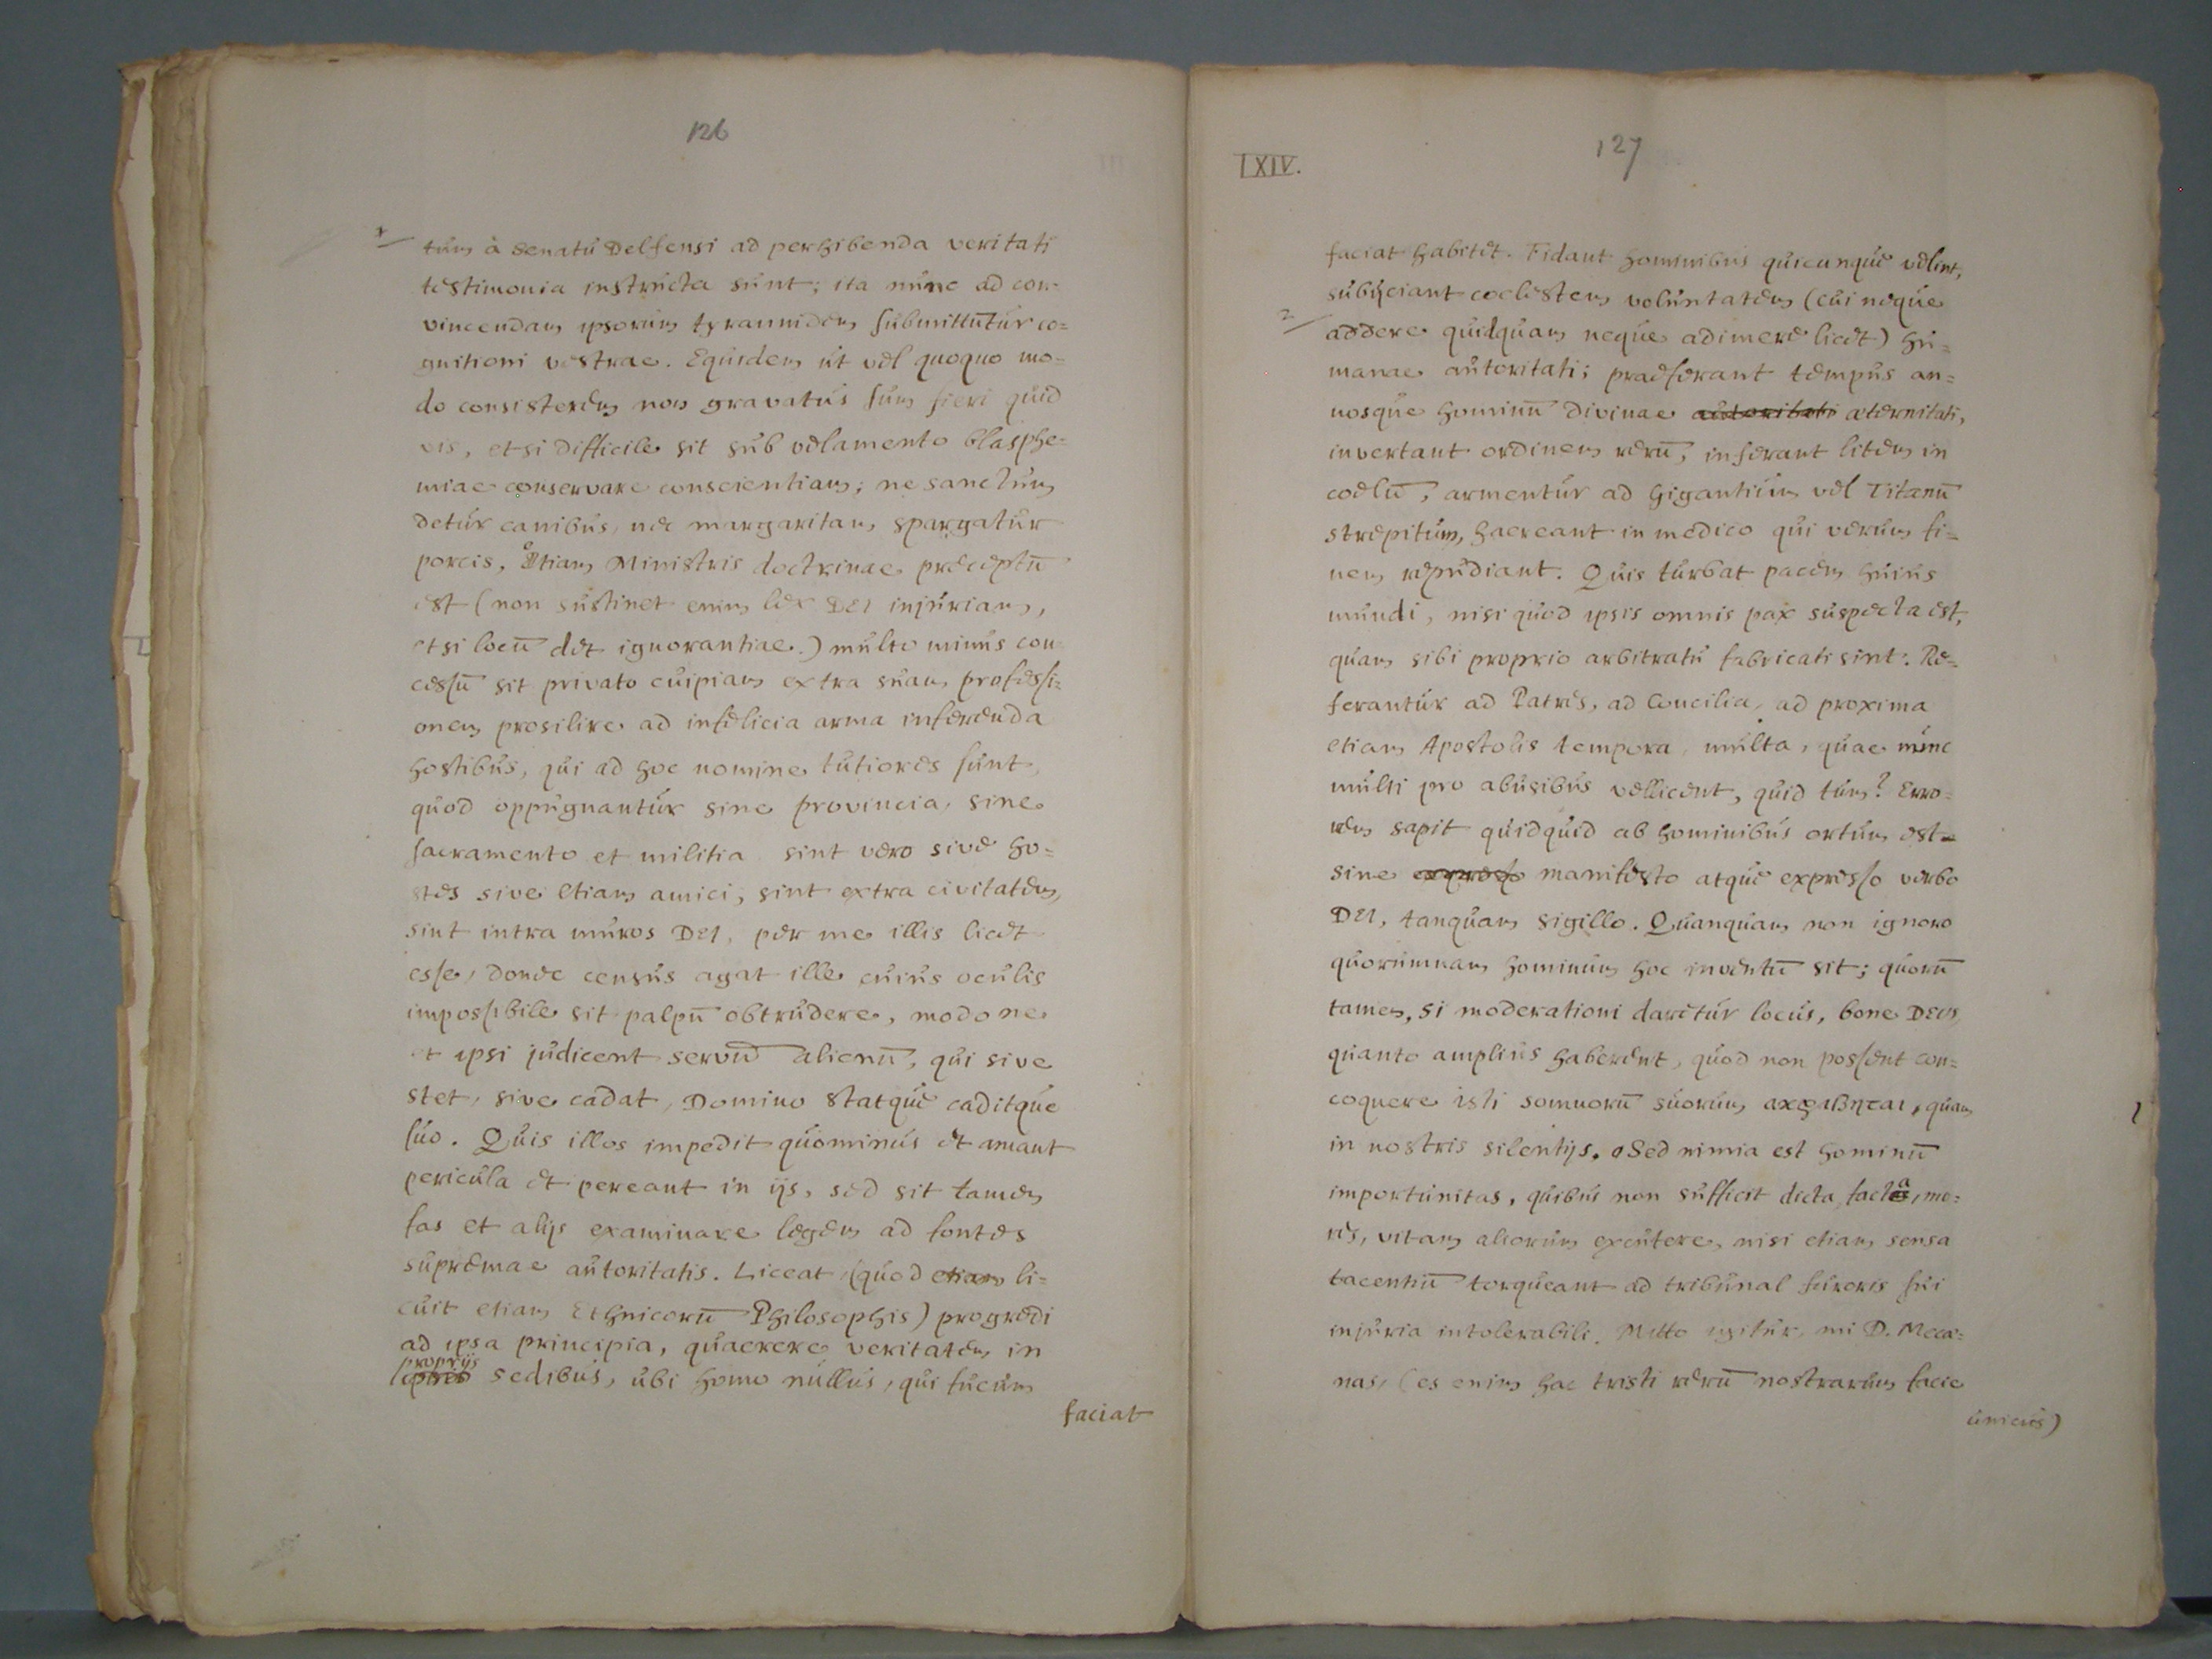 126
tum à Senatu Delfensi ad perhibenda veritati
testimonia instructa sunt; ita nunc ad con-
vincendam ipsorum tyrannidem submittuntur co=
gnitioni vestrae. Equidem ut vel quoquo mo-
do consisterem non gravatus sum fieri quid
vis, etsi difficile sit sub velamento blasphe=
miae conservare conscientiam; ne sanctum
detur canibus, nec margaritam spargatur
porcis, Etiam Ministris doctrinae praeceptū
est (non sustinet enim lex DEI injuriam,
etsi locū det ignorantiae.) multo minus con-
cessū sit privato cuipiam extra suam professi=
onem prosilire ad infelicia arma inferenda
hostibus, qui ad hoc nomine tutiores sunt,
quod oppugnantur sine provincia, sine
sacramento et militia sint vero sive ho=
stes sive etiam amici, sint extra civitatem,
sint intra muros DEI, per me illis licet
esse, donec census agat ille cuius oculis
impossibile sit palpū obtrudere, modo ne
et ipsi judicent servū alienū, qui sive
stet, sive cadat, Domino statque caditque
suo. Quis illos impedit quominus et amant
pericula et pereant in ijs, sed sit tamen
fas et alijs examinare legem ad fontes
supremae autoritatis. Liceat, (quod etiam li=
cuit etiam Ethnicorū Philosophis) progredi
ad ipsa principia, quaerere veritatem in
proprijs
sedibus, ubi homo nullus, qui fucum
faciat
LXIV.
127
faciat habitet. Fidant hominibus quicunque velint,
subijciant coelestem voluntatem (cui neque
2
addere quidquam neque adimere licet) hu=
manae autoritati; praeferant tempus an=
nosque hominū divinae autoritati aeternitati,
invertant ordinem rerū, inferant litem in
coelū, armentur ad Gigantium vel Titanū
strepitum, haereant in medico qui verum fi=
nem repudiant. Quis turbat pacem huius
mundi, nisi quod ipsis omnis pax suspecta est,
quam sibi proprio arbitratu fabricati sint. Re=
ferantur ad Patres, ad Concilia, ad proxima
etiam Apostolis tempora, multa, quae nunc
multi pro abusibus vellicent, quid tum? Erro=
rem sapit quidquid ab hominibus ortum est
sine expresso manifesto atque expresso verbo
DEI, tanquam sigillo. Quanquam non ignoro
quorumnam hominum hoc inventū sit; quorū
tamen, si moderationi daretur locus, bone DEUS
quanto amplius haberent, quod non possent con=
coquere isti somnorū suorum ακριβηται, quam
in nostris silentijs. Sed nimia est hominū
importunitas, quibus non sufficit dicta facta, mo=
res, vitam aliorum excutere, nisi etiam sensa
tacentiū torqueant ad tribunal furoris sui
injuria intolerabili. Mitto igitur, mi D. Mecae=
nas, (es enim hac tristi rerū nostrarum facie
unicus)